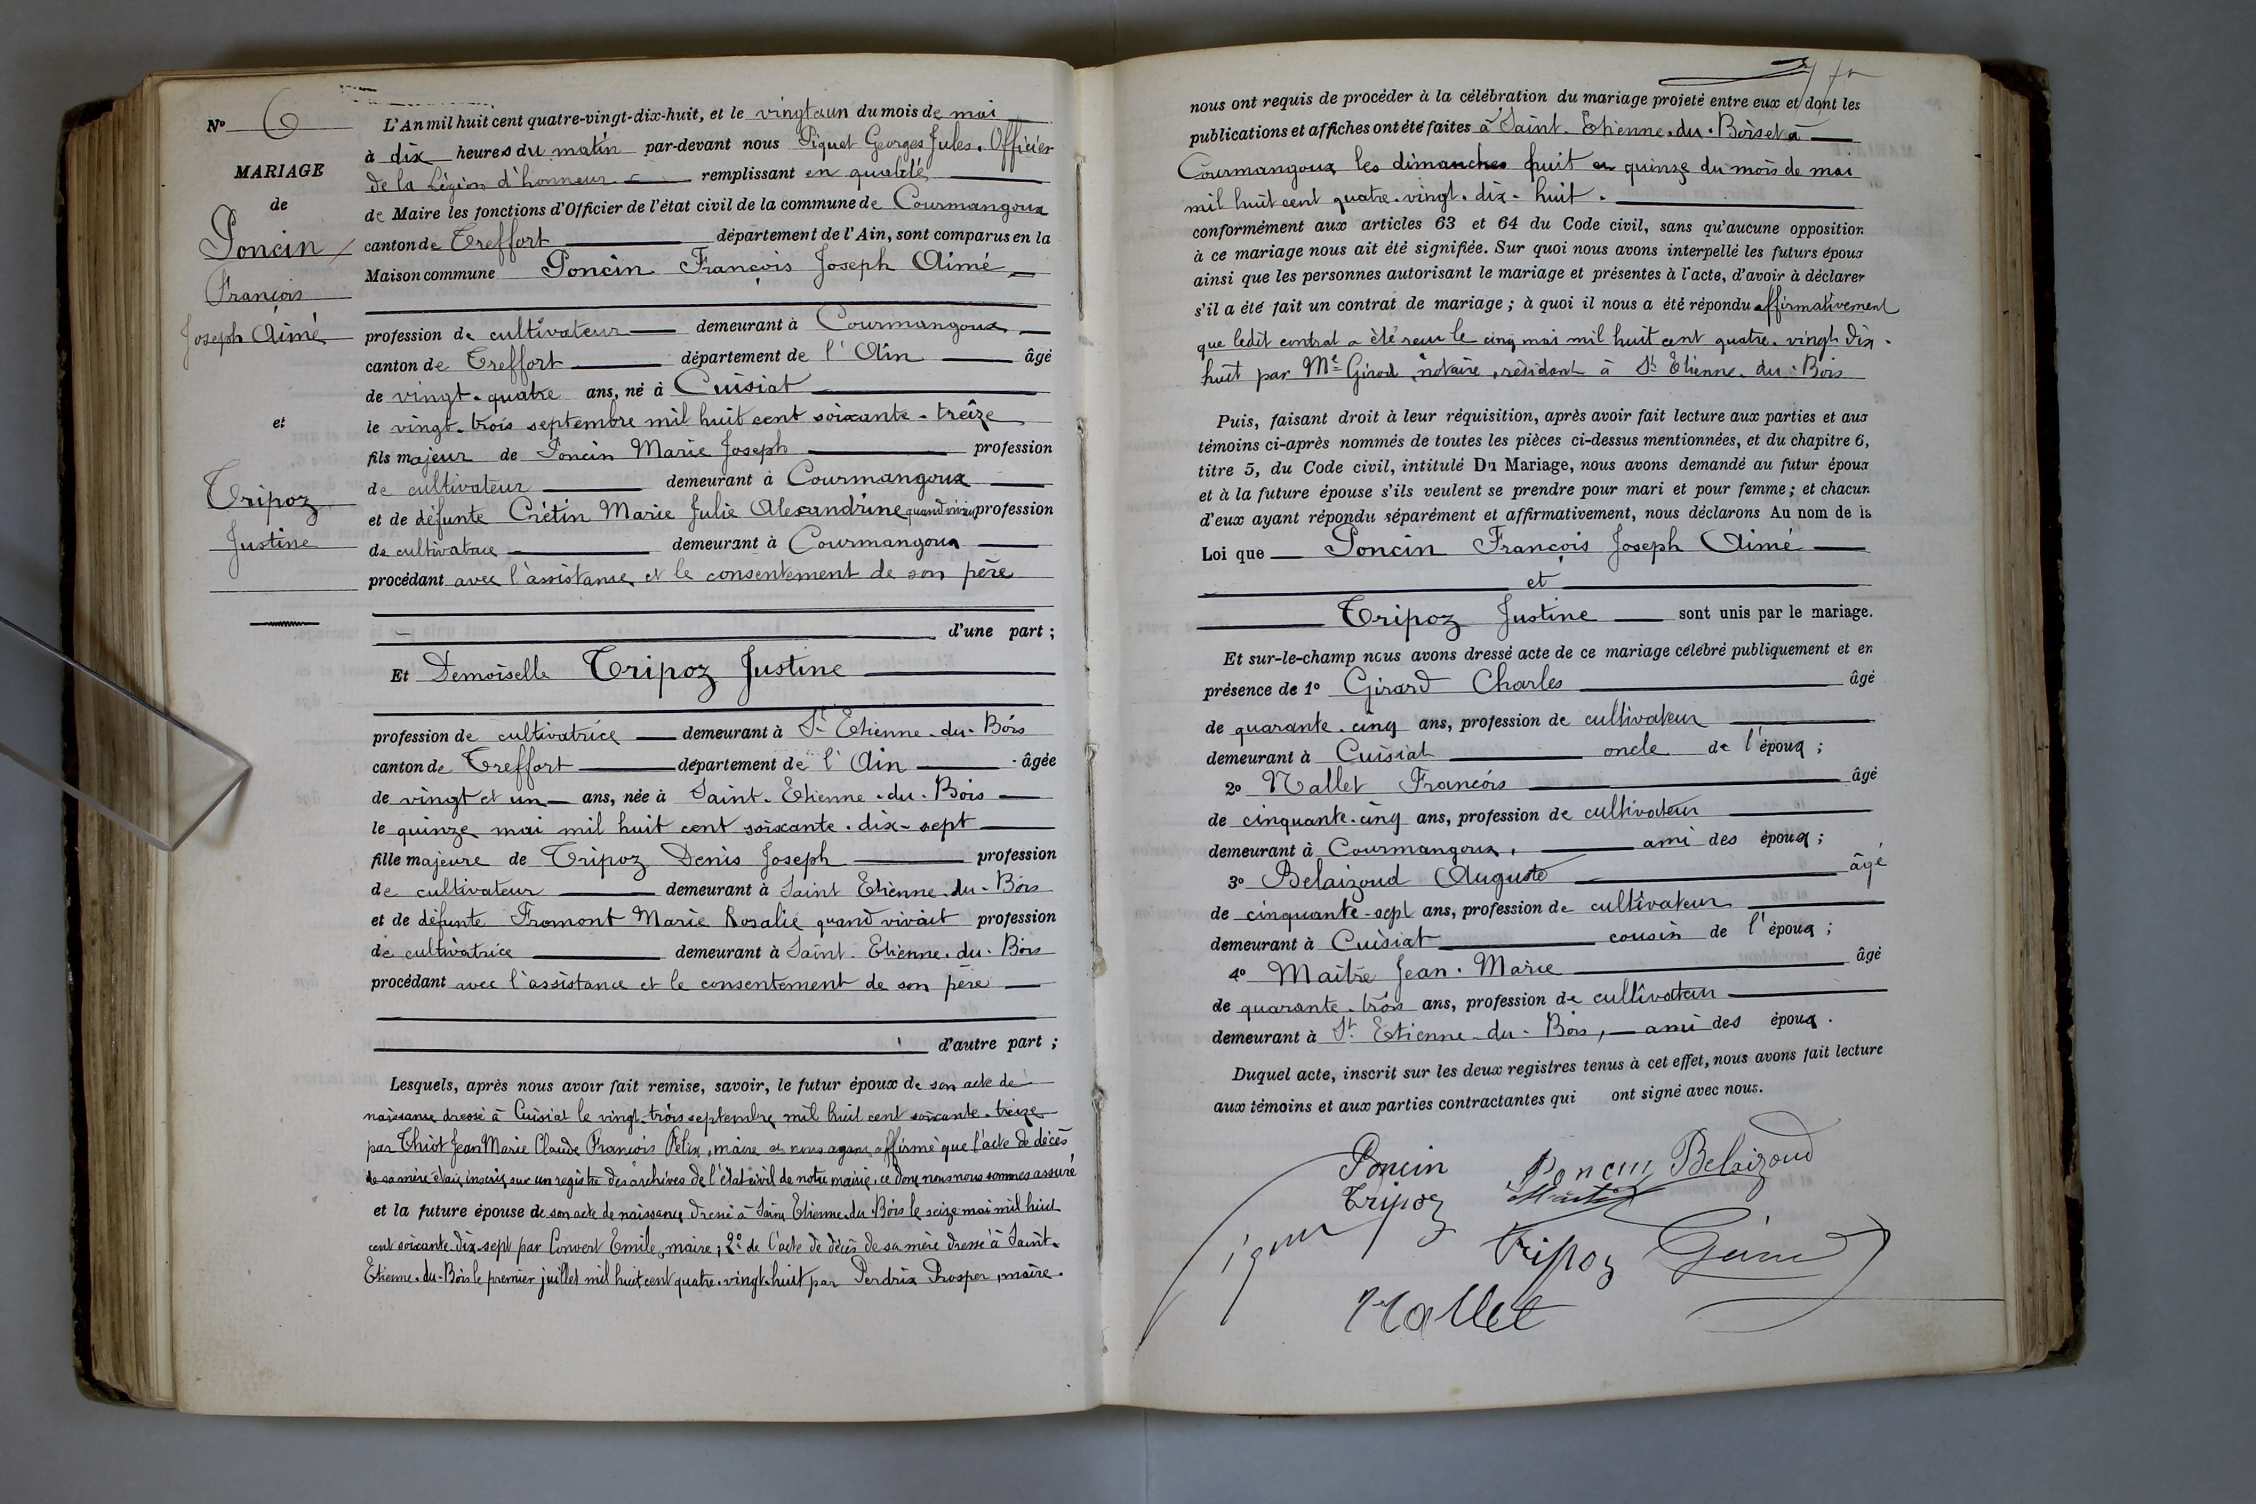 N° 6
MARIAGE
de
Poncin
François
Joseph Aimé
et
Tripoz
Justine
L'An mil huit cent quatre-vingt-dix-huit, et le vingt et un du mois de mai
à dix heures du matin par-devant nous Piquet Georges Jules, Officier
de la Légion d'honneur remplissant en qualité
de Maire les fonctions d'Officier de l'état civil de la commune de Courmangoux
canton de Treffort département de l'Ain, sont comparus en la
Maison commune Poncin François Joseph Aimé
profession de cultivateur demeurant à Courmangoux
canton de Treffort département de l'Ain âgé
de vingt-quatre ans, né à Cuisiat
le vingt-trois septembre mil huit cent soixante-treize
fils majeur de Poncin Marie Joseph profession
de cultivateur demeurant à Courmangoux
et de défunte Crétin Marie Julie Alexandrine quand vivait profession
de cultivatrice demeurant à Courmangoux
procédant avec l'assistance et le consentement de son père
d'une part ;
Et Demoiselle Tripoz Justine
profession de cultivatrice demeurant à St Etienne-du-Bois
canton de Treffort département de l'Ain âgée
de vingt et un ans, née à Saint-Etienne-du-Bois
le quinze mai mil huit cent soixante-dix-sept
fille majeure de Tripoz Denis Joseph profession
de cultivateur demeurant à Saint Etienne-du-Bois
et de défunte Fromont Marie Rosalie quand vivait profession
de cultivatrice demeurant à Saint-Etienne-du-Bois
procédant avec l'assistance et le consentement de son père
d'autre part ;
Lesquels, après nous avoir fait remise, savoir, le futur époux de son acte de
naissance dressé à Cuisiat le vingt-trois septembre mil huit cent soixante-treize
par Thiot Jean Marie Claude François Félix, maire et nous ayant affirmé que l'acte de décès
de sa mère était inscrit sur un registre des archives de l'état civil de notre mairie, ce dont nous nous sommes assuré
et la future épouse de son acte de naissance dressé à Saint Etienne-du-Bois le seize mai mil huit
cent soixante-dix-sept par Convert Emile, maire ; 2° de l'acte de décès de sa mère dressé à Saint-
Etienne-du-Bois le premier juillet mil huit cent quatre-vingt-huit par Perdrix Prosper, maire.
nous ont requis de procéder à la célébration du mariage projeté entre eux et dont les
publications et affiches ont été faites à Saint-Etienne-du-Bois et à
Courmangoux les dimanches huit et quinze du mois de mai
mil huit cent quatre-vingt-dix-huit.
conformément aux articles 63 et 64 du Code civil, sans qu'aucune opposition
à ce mariage nous ait été signifiée. Sur quoi nous avons interpellé les futurs époux
ainsi que les personnes autorisant le mariage et présentes à l'acte, d'avoir à déclarer
s'il a été fait un contrat de mariage ; à quoi il nous a été répondu affirmativement
que ledit contrat a été reçu le cinq mai mil huit cent quatre-vingt dix-
huit par Me Girod, notaire, résidant à St Etienne-du-Bois
Puis, faisant droit à leur réquisition, après avoir fait lecture aux parties et aux
témoins ci-après nommés de toutes les pièces ci-dessus mentionnées, et du chapitre 6,
titre 5, du Code civil, intitulé Du Mariage, nous avons demandé au futur époux
et à la future épouse s'ils veulent se prendre pour mari et pour femme ; et chacun
d'eux ayant répondu séparément et affirmativement, nous déclarons Au nom de la
Loi que Poncin François Joseph Aimé
et
Tripoz Justine sont unis par le mariage.
Et sur-le-champ nous avons dressé acte de ce mariage célébré publiquement et en
présence de 1° Girard Charles âgé
de quarante-cinq ans, profession de cultivateur
demeurant à Cuisiat oncle de l'époux ;
2° Nallet François âgé
de cinquante-cinq ans, profession de cultivateur
demeurant à Courmangoux, ami des époux ;
3° Belaizoud Auguste âgé
de cinquante-sept ans, profession de cultivateur
demeurant à Cuisiat cousin de l'époux ;
4° Maître Jean-Marie âgé
de quarante-trois ans, profession de cultivateur
demeurant à St Etienne-du-Bois, ami des époux.
Duquel acte, inscrit sur les deux registres tenus à cet effet, nous avons fait lecture
aux témoins et aux parties contractantes qui ont signé avec nous.
Poncin Poncin Belaizoud
Tripoz
Tripoz
Nallet